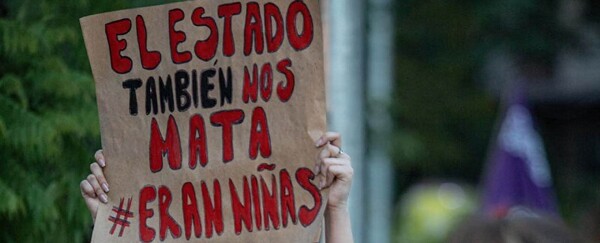 EL ESTADO
TAMBIÉN NOS
MATA
#ERAN NIÑAS